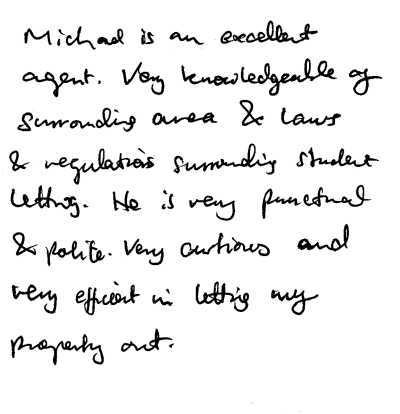 Michael is an excellent
agent. Very knowledgeable of
surrounding area & laws
& regulations surrounding student
letting. He is very punctual
& polite. Very curtious and
very efficient in letting my
property out.